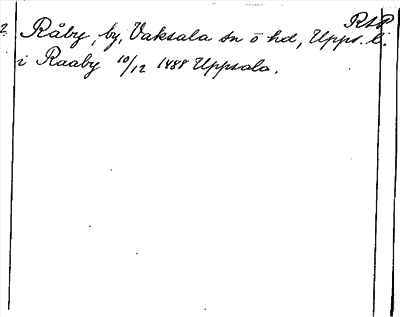 RAP
2. Råby, by, Vaksala sn ö hd, Upps. l.
i Raaby 10/12 1488 Uppsala.